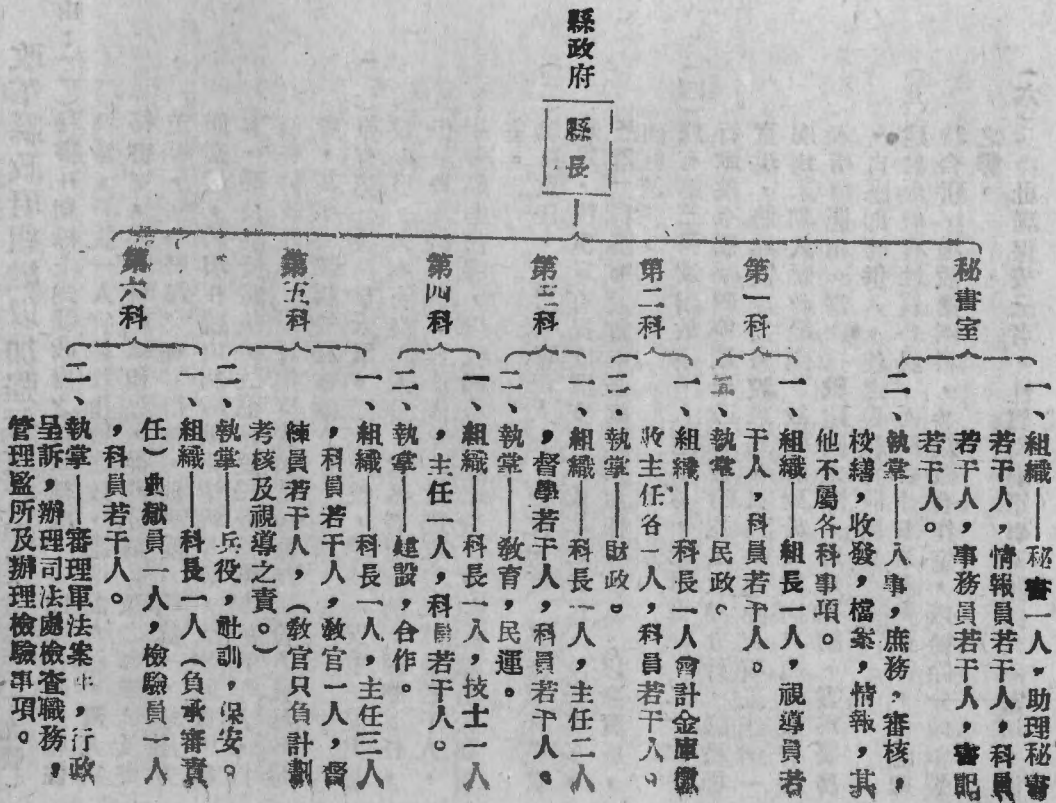 縣政府
縣長
秘書室
一、組織——秘書一人，助理秘書
若干人，情報員若干人，科員
若干人，事務員若干人，書記
若干人。
二、執掌——人事，庶務，審核，
校繕，收發，檔案，情報，其
他不屬各科事項。
第一科
一、組織——組長一人，視導員若
干人，科員若干人。
執掌——民政。
第二科
一、組織——科長一人會計金庫徵
收主任各一人，科員若干人。
二、執掌——財政。
第三科
一、組織——科長一人，主任二人
，督學若干人，科員若干人。
二、執掌——教育，民運。
第四科
一、組織——科長一人，技士一人
，主任一人，科員若干人。
二、執掌——建設，合作。
第五科
一、組織——科長一人，主任三人
，科員若干人，教官一人，督
練員若干人，（教官只負計劃
考核及視導之責。）
二、執掌——兵役，社訓，保安。
第六科
一、組織——科長一人（負承審責
任）典獄員一人，檢驗員一人
，科員若干人。
二、執掌——審理軍法案件，行政
呈訴，辦理司法處檢查職務，
管理監所及辦理檢驗事項。